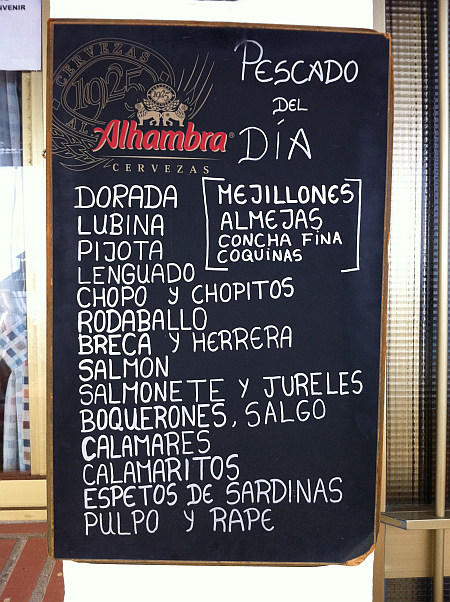 NVENIR
CERVEZAS
1925
Alhambra®
CERVEZAS
PESCADO
DEL
DÍA
DORADA
LUBINA
PIJOTA
LENGUADO
MEJILLONES
ALMEJAS
CONCHA FINA
COQUINAS
CHOPO Y CHOPITOS
RODABALLO
BRECA Y HERRERA
SALMON
SALMONETE Y JURELES
BOQUERONES, SALGO
CALAMARES
CALAMARITOS
ESPETOS DE SARDINAS
PULPO Y RAPE